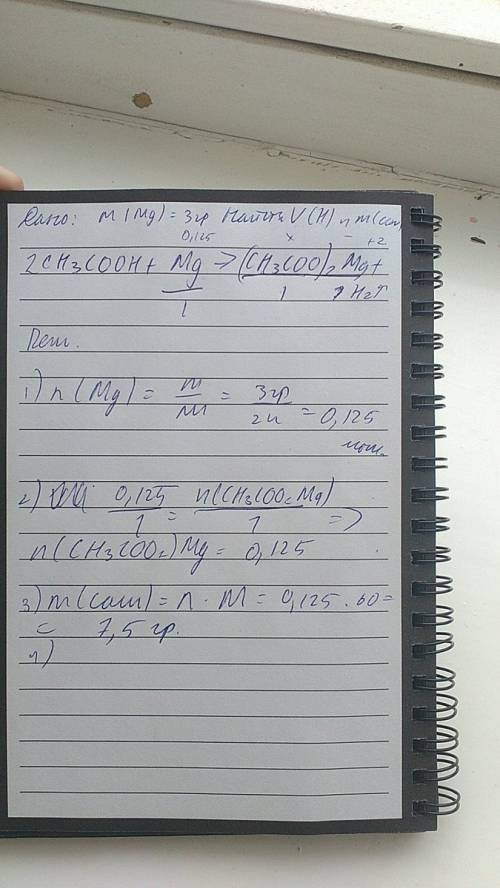 Дано: m(Mg) = 3гр Найти V(H) и m(соли)
0,125 x +2
2CH3COOH + Mg → (CH3COO)2Mg +
1 1 H2↑
Реш.
1) n(Mg) = m/M = 3гр/24 = 0,125
моль
2) 0,125/1 = n(CH3COO2Mg)/1 =>
n(CH3COO2)Mg = 0,125
3) m(соли) = n · M = 0,125 · 60 =
= 7,5 гр.
4)